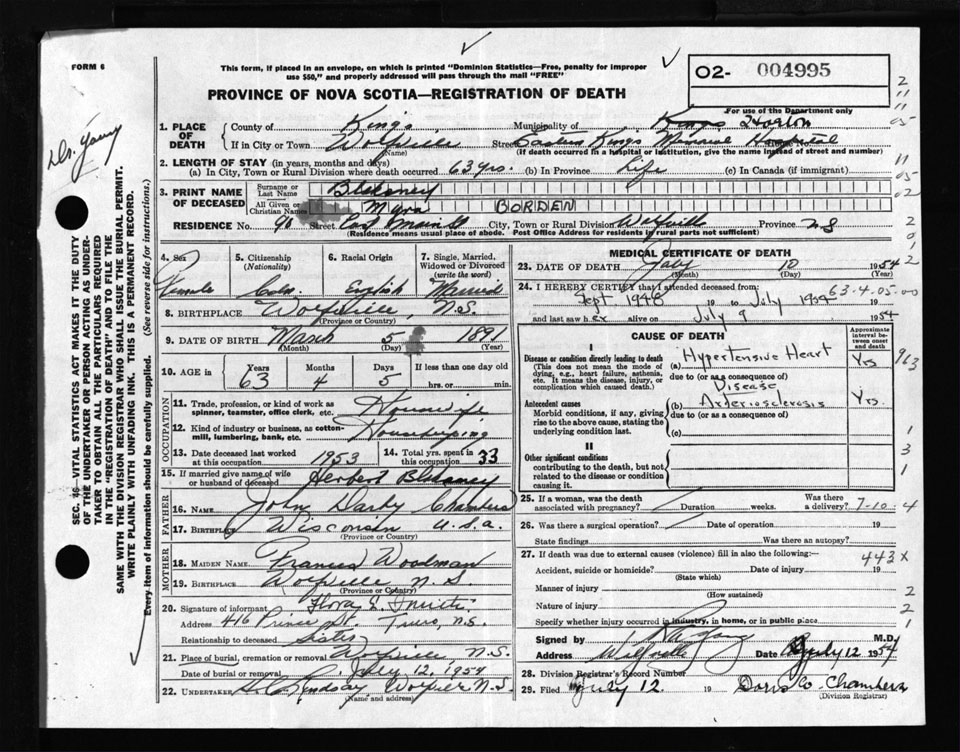 FORM 6
This form, if placed in an envelope, on which is printed "Dominion Statistics—Free, penalty for improper
use $50," and properly addressed will pass through the mail "FREE"
O2- 004995
PROVINCE OF NOVA SCOTIA—REGISTRATION OF DEATH
For use of the Department only
Dr. Young
SEC. 16—VITAL STATISTICS ACT MAKES IT THE DUTY
OF THE UNDERTAKER OR PERSON ACTING AS UNDER-
TAKER TO OBTAIN ALL THE PARTICULARS REQUIRED
IN THE "REGISTRATION OF DEATH" AND TO FILE THE
SAME WITH THE DIVISION REGISTRAR WHO SHALL ISSUE THE BURIAL PERMIT.
WRITE PLAINLY WITH UNFADING INK. THIS IS A PERMANENT RECORD.
Every item of information should be carefully supplied. (See reverse side for instructions.)
1. PLACE OF DEATH County of Kings Municipality of Kings Horton
If in City or Town Wolfville (Name) Street Eastern Kings Memorial Hospital
(If death occurred in a hospital or institution, give the name instead of street and number)
2. LENGTH OF STAY (in years, months and days)
(a) In City, Town or Rural Division where death occurred 63 yrs. (b) In Province Life (c) In Canada (if immigrant)
3. PRINT NAME OF DECEASED Surname or Last Name Blakeney
All Given or Christian Names Myra BORDEN
RESIDENCE No. 90 Street East Main St City, Town or Rural Division Wolfville Province N S
(Residence means usual place of abode. Post Office Address for residents of rural parts not sufficient)
4. Sex Female
5. Citizenship (Nationality) Can.
6. Racial Origin English
7. Single, Married, Widowed or Divorced (write the word) Married
8. BIRTHPLACE Wolfville, N.S.
(Province or Country)
9. DATE OF BIRTH March (Month) 5 (Day) 1891 (Year)
10. AGE in Years 63 Months 4 Days 5 If less than one day
hrs. or min.
OCCUPATION
11. Trade, profession, or kind of work as
spinner, teamster, office clerk, etc. Housewife
12. Kind of industry or business, as cotton-
mill, lumbering, bank, etc. Housekeeping
13. Date deceased last worked at this occupation 1953 14. Total yrs. spent in this occupation 33
15. If married give name of wife or husband of deceased Herbert Blakeney
FATHER
16. Name John Darby Chambers
17. Birthplace Wisconsin U.S.A.
(Province or Country)
MOTHER
18. Maiden Name Frances Woodman
19. Birthplace Wolfville N.S.
(Province or Country)
20. Signature of informant Flora
Address 416 Prince St. Truro, N.S.
Relationship to deceased Sister
21. Place of burial, cremation or removal Wolfville, N.S.
Date of burial or removal July 12, 1954
22. Undertaker Lindsay
(Name and Address)
MEDICAL CERTIFICATE OF DEATH
23. DATE OF DEATH July (Month) 10 (Day) 1954
24. I HEREBY CERTIFY that I attended deceased from: 63-4.05.00
Sept 1948 19 to July 1954
and last saw her alive on July 9 1954
CAUSE OF DEATH
Approximate interval between onset and death
I
Disease or condition directly leading to death (a) Hypertensive Heart Yrs 963
(This does not mean the mode of dying, e.g., heart failure, asthenia, etc. It means the disease, injury, or complication which caused death.)
due to (or as a consequence of)
Disease
Antecedent causes (b) Arteriosclerosis Yrs.
Morbid conditions, if any, giving rise to the above cause, stating the underlying condition last.
due to (or as a consequence of)
(c)
II
Other significant conditions
contributing to the death, but not related to the disease or condition causing it.
25. If a woman, was the death associated with pregnancy? Duration weeks. Was there a delivery? 7-10-4
26. Was there a surgical operation? Date of operation 19
State findings Was there an autopsy?
27. If death was due to external causes (violence) fill in also the following: 443 X
Accident, suicide or homicide? Date of injury 19
(State which)
Manner of injury
(How sustained)
Nature of injury
Specify whether injury occurred in industry, in home, or in public place
Signed by M.D.
Address Wolfville Date July 12 1954
28. Division Registrar's Record Number
29. Filed July 12 19 Doris Co. Chambers
(Division Registrar)